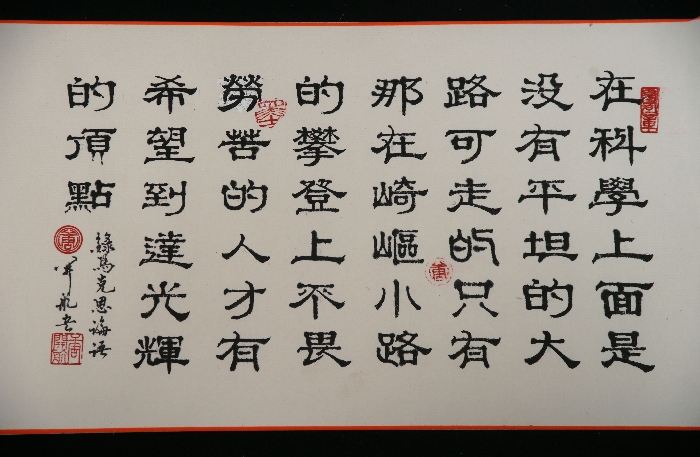 在科學上面是
没有平坦的大
路可走的只有
那在崎嶇小路
的攀登上不畏
勞苦的人才有
希望到達光輝
的頂點
錄馬克思誨语